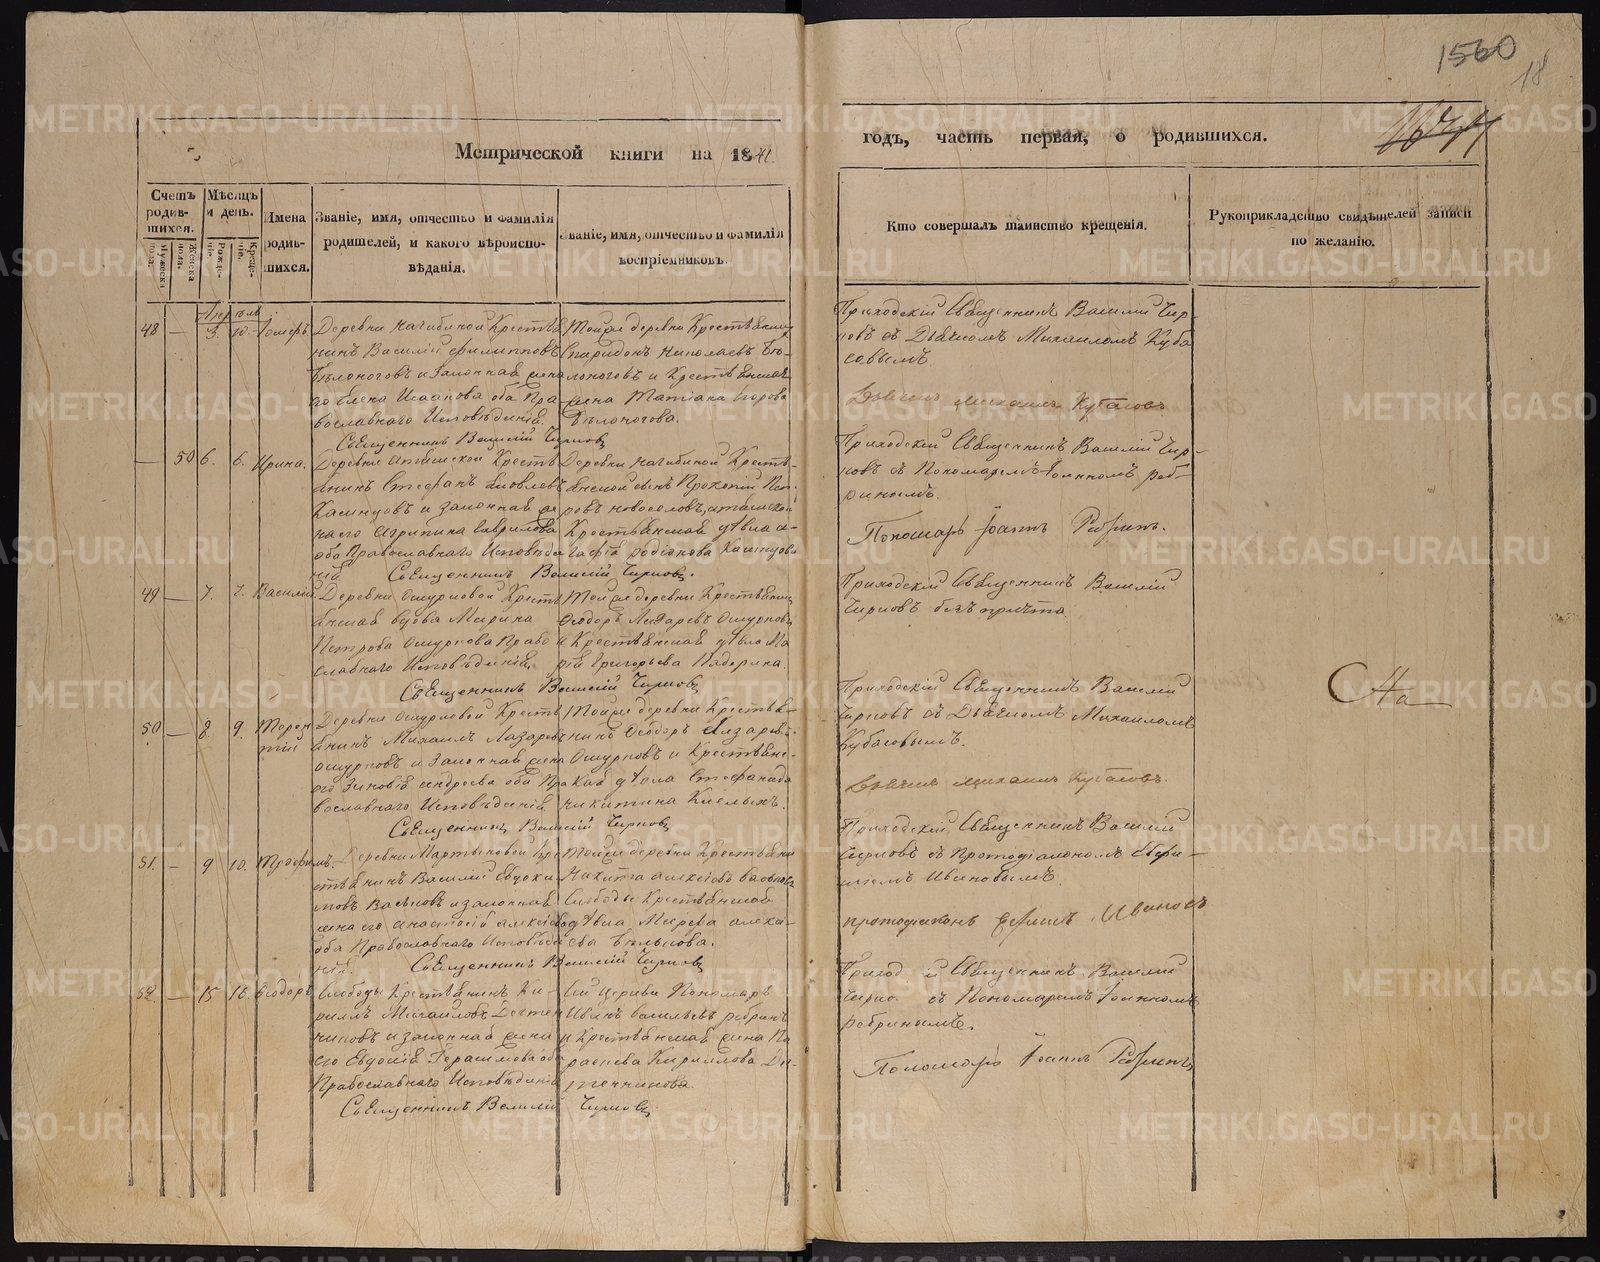 1560
18
Метрической книги на 1841.
годъ, часть первая, о родившихся.
Счетъ родив-шихся.
Мужеска пола.
Женска пола.
Мѣсяцъ и день.
Рожде-нія.
Креще-нія.
Имена родив-шихся.
Званіе, имя, отчество и фамилія родителей, и какого вѣроиспо-вѣданія.
Званіе, имя, отчество и фамилія воспріемниковъ.
Кто совершалъ таинство крещенія.
Рукоприкладство свидѣтелей записи по желанію.
Апрѣль
48 — 3. 10.
Деревни Нагибиной Крестья
нинъ Василій Филипповъ
Бѣлоноговъ и Законная жена
его Елена Исаакова оба Пра
вославнаго Исповѣданія.
Священникъ Василій Чирковъ
Тойже деревни Крестьянинъ
Спиридонъ Николаевъ Бѣ-
лоноговъ и Крестьянская
жена Татіана Егорова
Бѣлоногова.
Приходскій Священникъ Василій Чир-
ковъ съ Дьячкомъ Михаиломъ Куба
совымъ
Дьячекъ Михаилъ Кубасовъ
— 50 6. 6. Ирина.
Крестья
янинъ Стефанъ Яковлевъ
и Законная же
на его Агрипина Гаврилова
оба Православнаго Исповѣда
нія. Священникъ Василій Чирковъ.
Деревни Нагибиной Кресть-
янской сынъ Прокопій Пет-
ровъ Новоселовъ,
Крестьянская дѣвка А-
гафія Родіонова
Приходскій Священникъ Василій Чир-
ковъ съ Пономаремъ Іоанномъ Реб-
ринымъ.
Пономарь Іоаннъ Ребринъ.
49 — 7. 7. Василій.
Деревни Ошурковой Кресть
янская вдова Марина
Петрова Ошуркова Право
славнаго Исповѣданія.
Священникъ Василій Чирковъ
Тойже деревни Крестьянинъ
Ѳеодоръ Лазаревъ Ошурковъ
и Крестьянская дѣвка Ма
рія Григорьева Кадерина.
Приходскій Священникъ Василій
Чирковъ безъ причта.
50. — 8. 9. Терен
тій
Деревни Ошурковой Кресть
янинъ Михаилъ Лазаревъ
Ошурковъ и Законная жена
его Зиновія Андреева оба Пра
вославнаго Исповѣданія.
Священникъ Василій Чирковъ
Тойже деревни Крестья-
нинъ Ѳеодоръ Лазаревъ
Ошурковъ и Крестьянс-
кая дѣвка Стефанида
Никитина
Приходскій Священникъ Василій
Чирковъ съ Дьячкомъ Михаиломъ
Кубасовымъ.
Дьячекъ Михаилъ Кубасовъ.
51. — 9 10. Трофимъ.
Деревни Мартыновой Кре
стьянинъ Василій Евдоки
мовъ Васьковъ и законная
жена его Анастасія Алексѣева
оба Православнаго Исповѣда
нія. Священникъ Василій Чирковъ
Тойже деревни Крестьянинъ
Никита Алексѣевъ Васьковъ
Слободы Крестьянская
дѣвка
Приходскій Священникъ Василій
Чирковъ съ Протодіакономъ Ефи-
міемъ Ивановымъ.
протодіаконъ Ефимъ Ивановъ
52 — 15 16. Ѳеодоръ
Слободы Крестьянинъ Ки-
риллъ Михайловъ Дегтен
никовъ и законная жена
его Евдокія Герасимова оба
Православнаго Исповѣданія
Священникъ Василій Чирковъ
Сей Церкви Пономарь
Иванъ Васильевъ Ребринъ
и Крестьянская жена Па
раскева Кириллова Де-
гтенникова.
Священникъ Василій
съ Пономаремъ Іоанномъ
Ребринымъ.
Пономарь Іоаннъ Ребринъ
На
METRIKI.GASO-URAL.RU